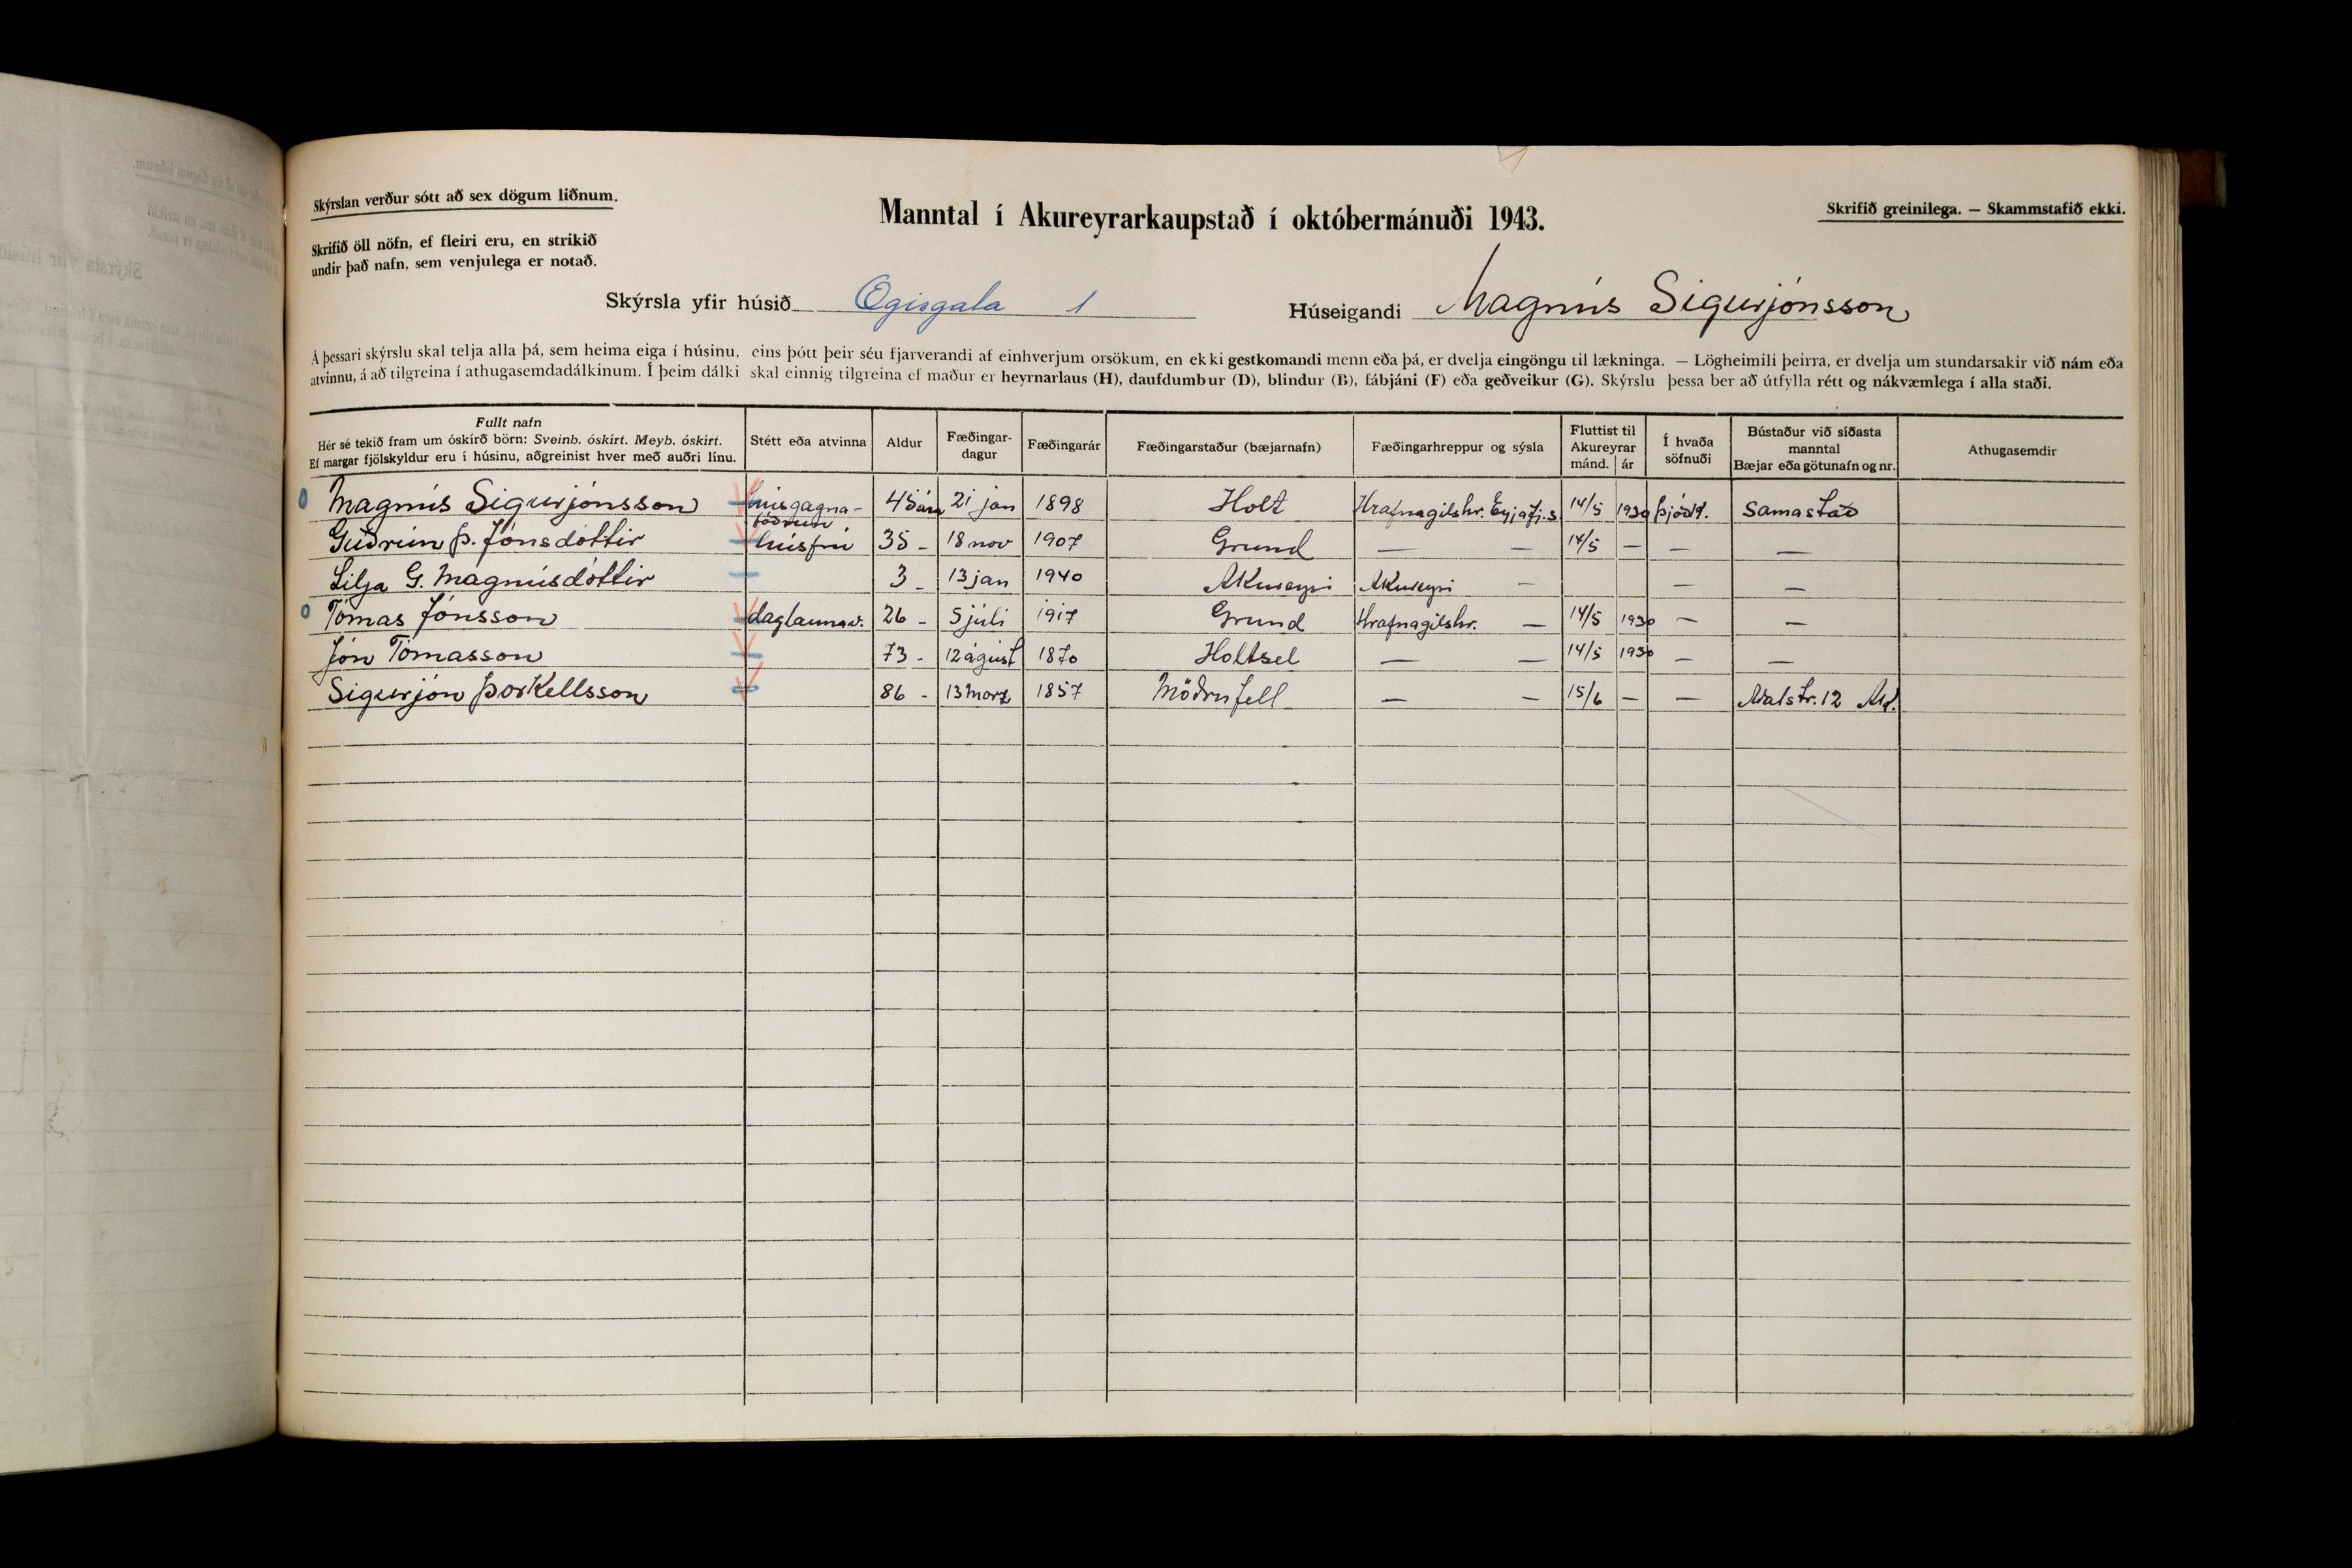 Skýrslan verður sótt að sex dögum liðnum.
Manntal í Akureyrarkaupstað í októbermánuði 1943.
Skrifið greinilega. — Skammstafið ekki.
Skrifið öll nöfn, ef fleiri eru, en strikið
undir það nafn, sem venjulega er notað.
Skýrsla yfir húsið Ægisgata 1 Húseigandi Magnús Sigurjónsson
Á þessari skýrslu skal telja alla þá, sem heima eiga í húsinu, eins þótt þeir séu fjarverandi af einhverjum orsökum, en ekki gestkomandi menn eða þá, er dvelja eingöngu til lækninga. — Lögheimili þeirra, er dvelja um stundarsakir við nám eða
atvinnu, á að tilgreina í athugasemdadálkinum. Í þeim dálki skal einnig tilgreina ef maður er heyrnarlaus (H), daufdumbur (D), blindur (B), fábjáni (F) eða geðveikur (G). Skýrslu þessa ber að útfylla rétt og nákvæmlega í alla staði.
Fullt nafn
Hér sé tekið fram um óskírð börn: Sveinb. óskírt. Meyb. óskírt.
Ef margar fjölskyldur eru í húsinu, aðgreinist hver með auðri línu.
Stétt eða atvinna
Aldur
Fæðingar-
dagur
Fæðingarár
Fæðingarstaður (bæjarnafn)
Fæðingarhreppur og sýsla
Fluttist til
Akureyrar
mánd. | ár
Í hvaða
söfnuði
Bústaður við síðasta
manntal
Bæjar eða götunafn og nr.
Athugasemdir
Magnús Sigurjónsson húsgagna- 45 ára 21 jan 1898 Holt Hrafnagilshr. Eyjafj.s. 14/5 1930 Þjóðk. samastað
fóðrun
Guðrún Þ. Jónsdóttir húsfrú 35 - 18 nov 1907 Grund — — 14/5 — — —
Lilja G. Magnúsdóttir 3 - 13 jan 1940 Akureyri Akureyri — — —
Tómas Jónsson daglaunav. 26 - 5 júli 1917 Grund Hrafnagilshr. — 14/5 1930 — —
Jón Tómasson 73 - 12 águst 1870 Holtsel — — 14/5 1930 — —
Sigurjón Þorkellsson 86 - 13 marz 1857 Möðrufell — — 15/6 — — Aðalstr. 12 Ak.